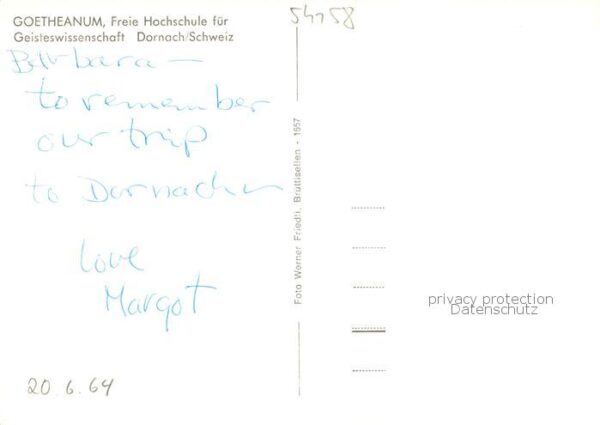 GOETHEANUM, Freie Hochschule für
Geisteswissenschaft Dornach/Schweiz
54758
Barbara —
to remember
our trip
to Dornach
love
Margot
20.6.64
Foto Werner Friedli, Brüttisellen - 1657
privacy protection
Datenschutz